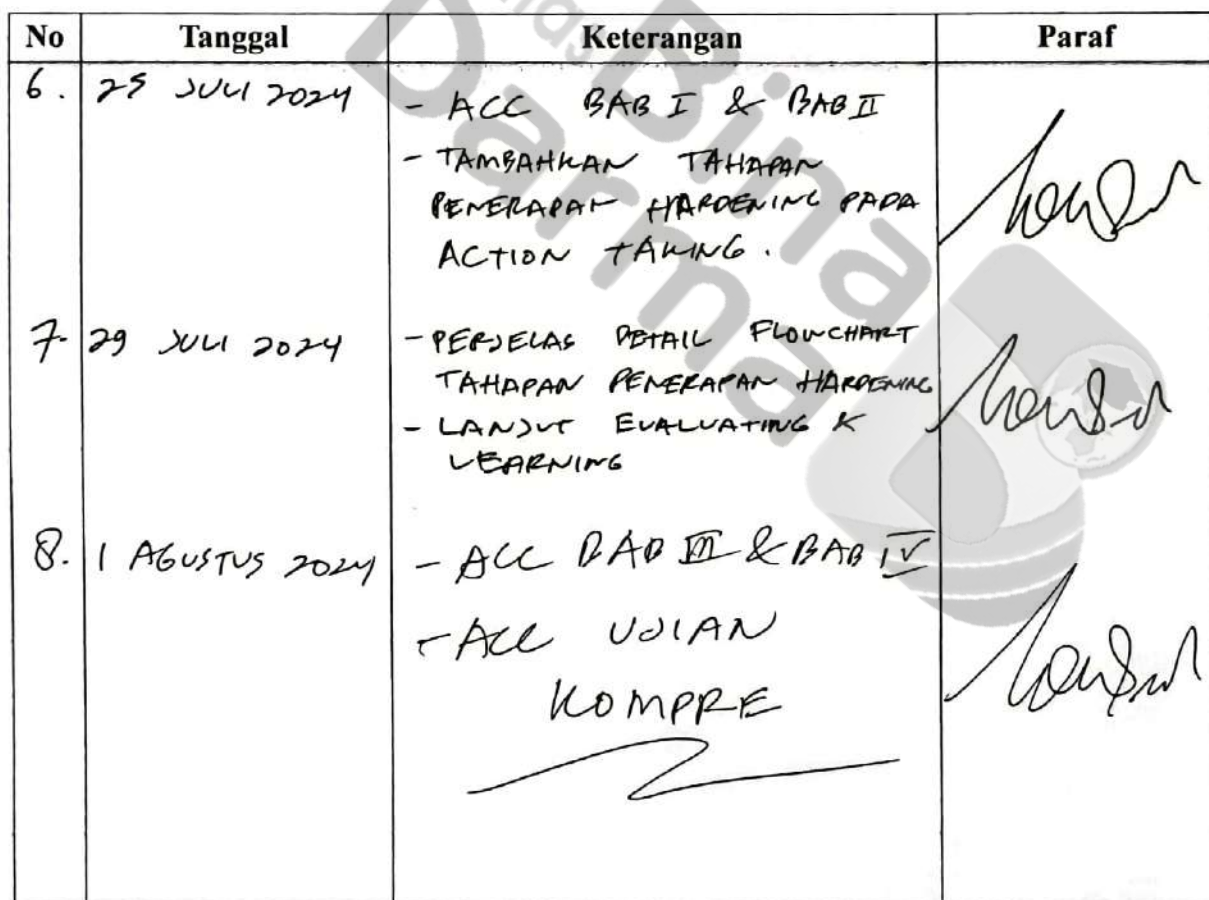 No Tanggal Keterangan Paraf
6. 25 JULI 2024 - ACC BAB I & BAB II
- TAMBAHKAN TAHAPAN
PENERAPAN HARDENING PADA
ACTION TAKING.
7. 29 JULI 2024 - PERJELAS DETAIL FLOWCHART
TAHAPAN PENERAPAN HARDENING
- LANJUT EVALUATING &
LEARNING
8. 1 AGUSTUS 2024 - ACC BAB III & BAB IV
- ACC UJIAN
KOMPRE
Bina
Darma